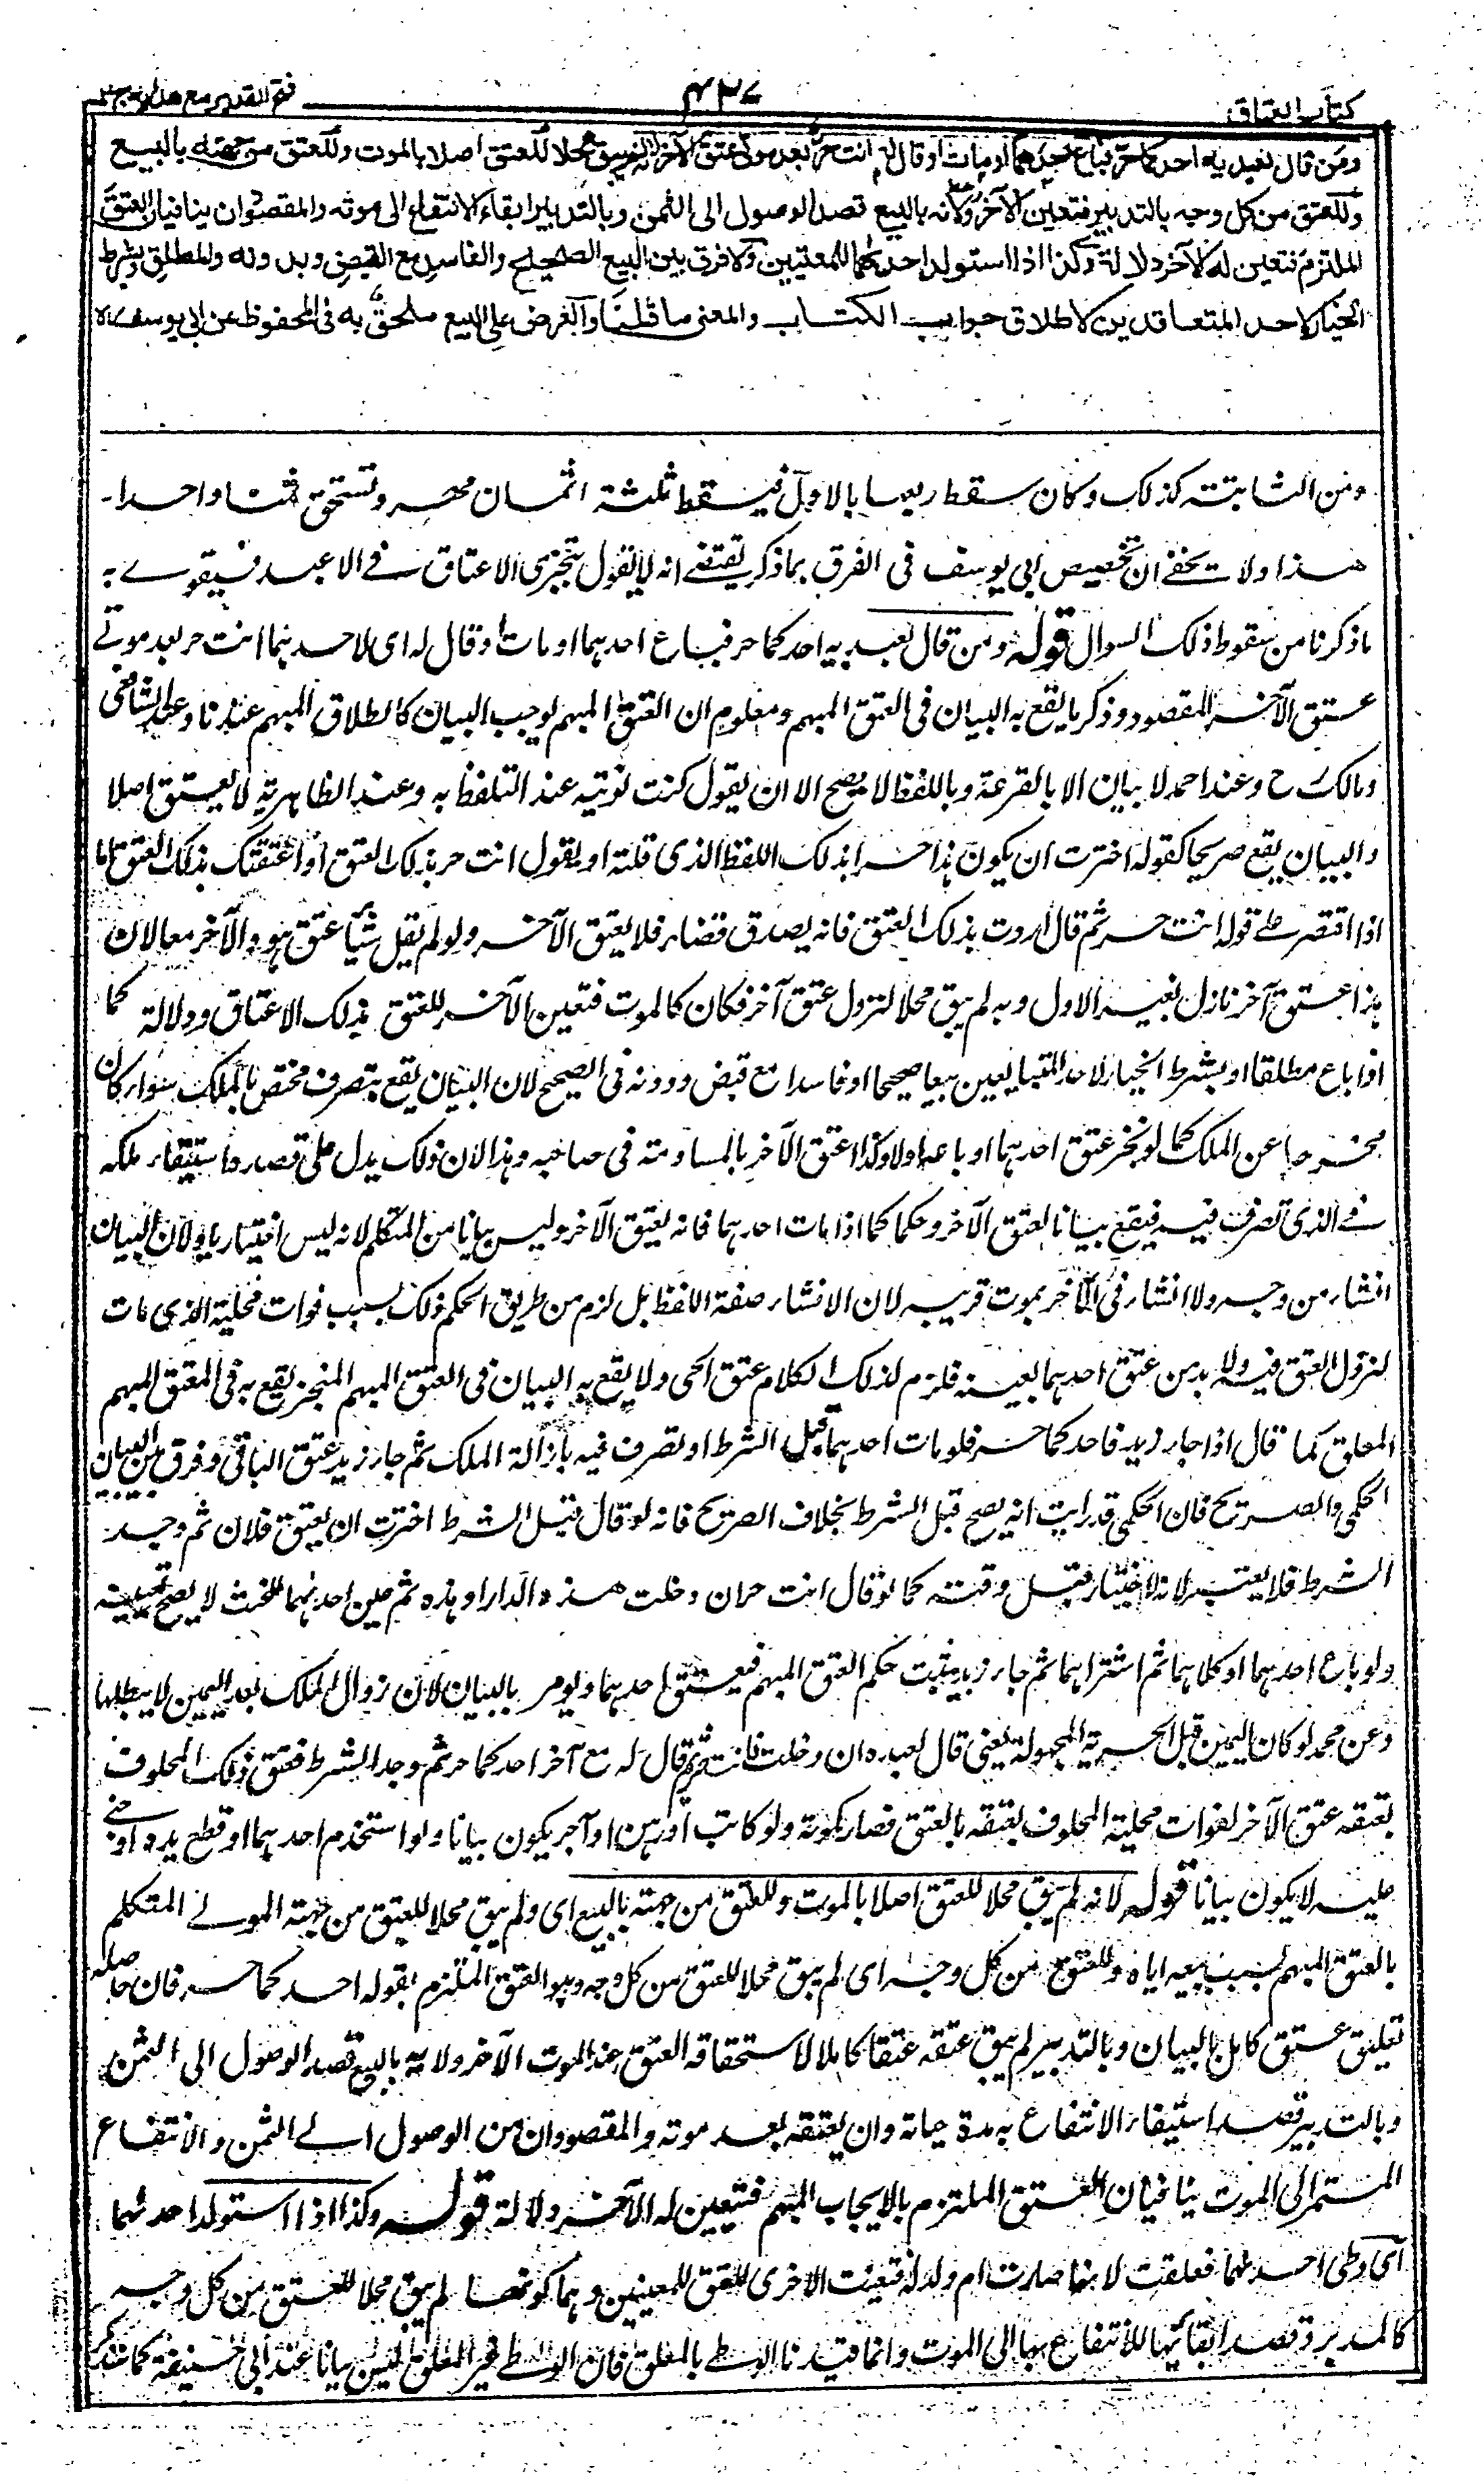 كتاب العتاق
٤٣٧
فتح القدير مع هدايه ج ٢
ومن قال لعبديه احدكما حر فباع احدهما او مات او قال له انت حر بعد موتى عتق الآخر لانه لم يبق محلا للعتق اصلا بالموت وللعتق من جهته بالبيع
وللعتق من كل وجه بالتدبير فتعين الآخر ولانه بالبيع قصد الوصول الى الثمن وبالتدبير ابقاء الانتفاع الى موته والمقصودان ينافيان العتق
الملتزم فتعين له الآخر دلالة وكذا اذا استولد احدكهما للمعنيين ولا فرق بين البيع الصحيح والفاسد مع القبض وبدونه والمطلق وبشرط
الخيار لاحد المتعاقدين لاطلاق جواب الكتاب والمعنى ما قلنا والعرض على البيع ملحق به فى المحفوظ عن ابى يوسف
ومن الثابتة كذلك وكان سقط ربعها بالاول فيسقط ثلثة اثمان مهر وتستحق ثمنا واحدا۔
هذا ولا يخفى ان تخصيص ابى يوسف فى الفرق بما ذكر يقتضى انه لا يقول بتجزى الاعتاق فى الاعبد فيقوى به
ما ذكرنا من سقوط ذلك السوال قوله ومن قال لعبديه احدكما حر فباع احدهما او مات او قال له اى لاحدهما انت حر بعد موتى
عتق الآخر المقصود ذكر ما يقع به البيان فى العتق المبهم ومعلوم ان العتق المبهم يوجب البيان كالطلاق المبهم عندنا وعند الشافعى
ومالك ح وعند احمد لا بيان الا بالقرعة وباللفظ لا يصح الا ان يقول كنت نويته عند التلفظ به وعند الظاهرية لا يعتق اصلا
والبيان يقع صريحا كقوله اخترت ان يكون هذا حرا بذلك اللفظ الذى قلته او يقول انت حر بذلك العتق او اعتقتك بذلك العتق اما
اذا اقتصر على قوله انت حر ثم قال اردت بذلك العتق فانه يصدق قضاء فلا يعتق الآخر ولو لم يقل شيئا عتق هو والآخر معا لان
هذا عتق آخر نازل بغير الاول وبه لم يبق محلا لنزول عتق آخر فكان كالموت فتعين الآخر للعتق بذلك الاعتاق ودلالة كما
اذا باع مطلقا او بشرط الخيار لاحد المتبايعين بيعا صحيحا او فاسدا مع قبض ودونه فى الصحيح لان البيان يقع بتصرف مختص بالملك سواء كان
مخرجا عن الملك كما لو نجز عتق احدهما او باعه اولا وكذا عتق الآخر بالمساومة فى صاحبه وهذا لان ذلك يدل على قصده استبقاء ملكه
فى الذى تصرف فيه فيقع بيانا لعتق الآخر وحكما كما اذا مات احدهما فانه يعتق الآخر وليس بيانا من المتكلم لانه ليس اختياريا ولان البيان
انشاء من وجه ولا انشاء فى الآخر بموت قريبه لان الانشاء صفة اللفظ بل لزم من طريق الحكم ذلك بسبب فوات محلية الذى مات
لنزول العتق فيه ولا بد من عتق احدهما بعينه فلزم لذلك الكلام عتق الحى ولا يقع به البيان فى العتق المبهم المنجز يقع به فى العتق المبهم
المعلق كما قال اذا جاء زيد فاحدكما حر فلو مات احدهما قبل الشرط او تصرف فيه بازالة الملك ثم جاء زيد عتق الباقى وفرق بين البيان
الحكمى والصريح فان الحكمى قد رايت انه يصح قبل الشرط بخلاف الصريح فانه لو قال قبل الشرط اخترت ان يعتق فلان ثم وجد
الشرط فلا يعتبر لانه اختيار قبل وقته كما لو قال انت حر ان دخلت هذه الدار او هذه ثم عين احدهما للحنث لا يصح تعيينه
ولو باع احدهما او كلاهما ثم اشتراهما ثم جاء زيد يثبت حكم العتق المبهم فيعتق احدهما ويومر بالبيان لان زوال الملك بعد اليمين لا يبطلها
وعن محمد لو كان اليمين قبل الحرية المجهولة يعنى قال لعبده ان دخلت فانت حر ثم قال له مع آخر احدكما حر ثم وجد الشرط فعتق ذلك المحلوف
بعتقه عتق الآخر لفوات محلية المحلوف بعتقه بالعتق فصار كموته ولو كاتب او رهن او آجر يكون بيانا ولو استخدم احدهما او قطع يده او جنى
عليه لا يكون بيانا قوله لانه لم يبق محلا للعتق اصلا بالموت وللعتق من جهته بالبيع اى ولم يبق محلا للعتق من جهة المولى المتكلم
بالعتق المبهم بسبب بيعه اياه وللعتق من كل وجه اى لم يبق محلا للعتق من كل وجه وهو العتق الملتزم بقوله احدكما حر فان حاصله
تعليق عتق كامل بالبيان وبالتدبير لم يبق عتقه عتقا كاملا لاستحقاقه العتق عند الموت الآخر ولانه بالبيع قصد الوصول الى الثمن
وبالتدبير قصد استبقاء الانتفاع به مدة حياته وان يعتقه بعد موته والمقصودان من الوصول الى الثمن والانتفاع
المستمر الى الموت ينافيان العتق الملتزم بالايجاب المبهم فتعين له الآخر دلالة قوله وكذا اذا استولد احدهما
اى وطى احدهما فعلقت لانها صارت ام ولد له فتعينت الاخرى للعتق للمعنيين وهما كونها لم يبق محلا للعتق من كل وجه
كالمدبر وقصد ابقائها للانتفاع بها الى الموت وانما قيدنا الوطى بالمعلق فان الوطى غير المعلق ليس بيانا عند ابى حنيفة كما نذكر